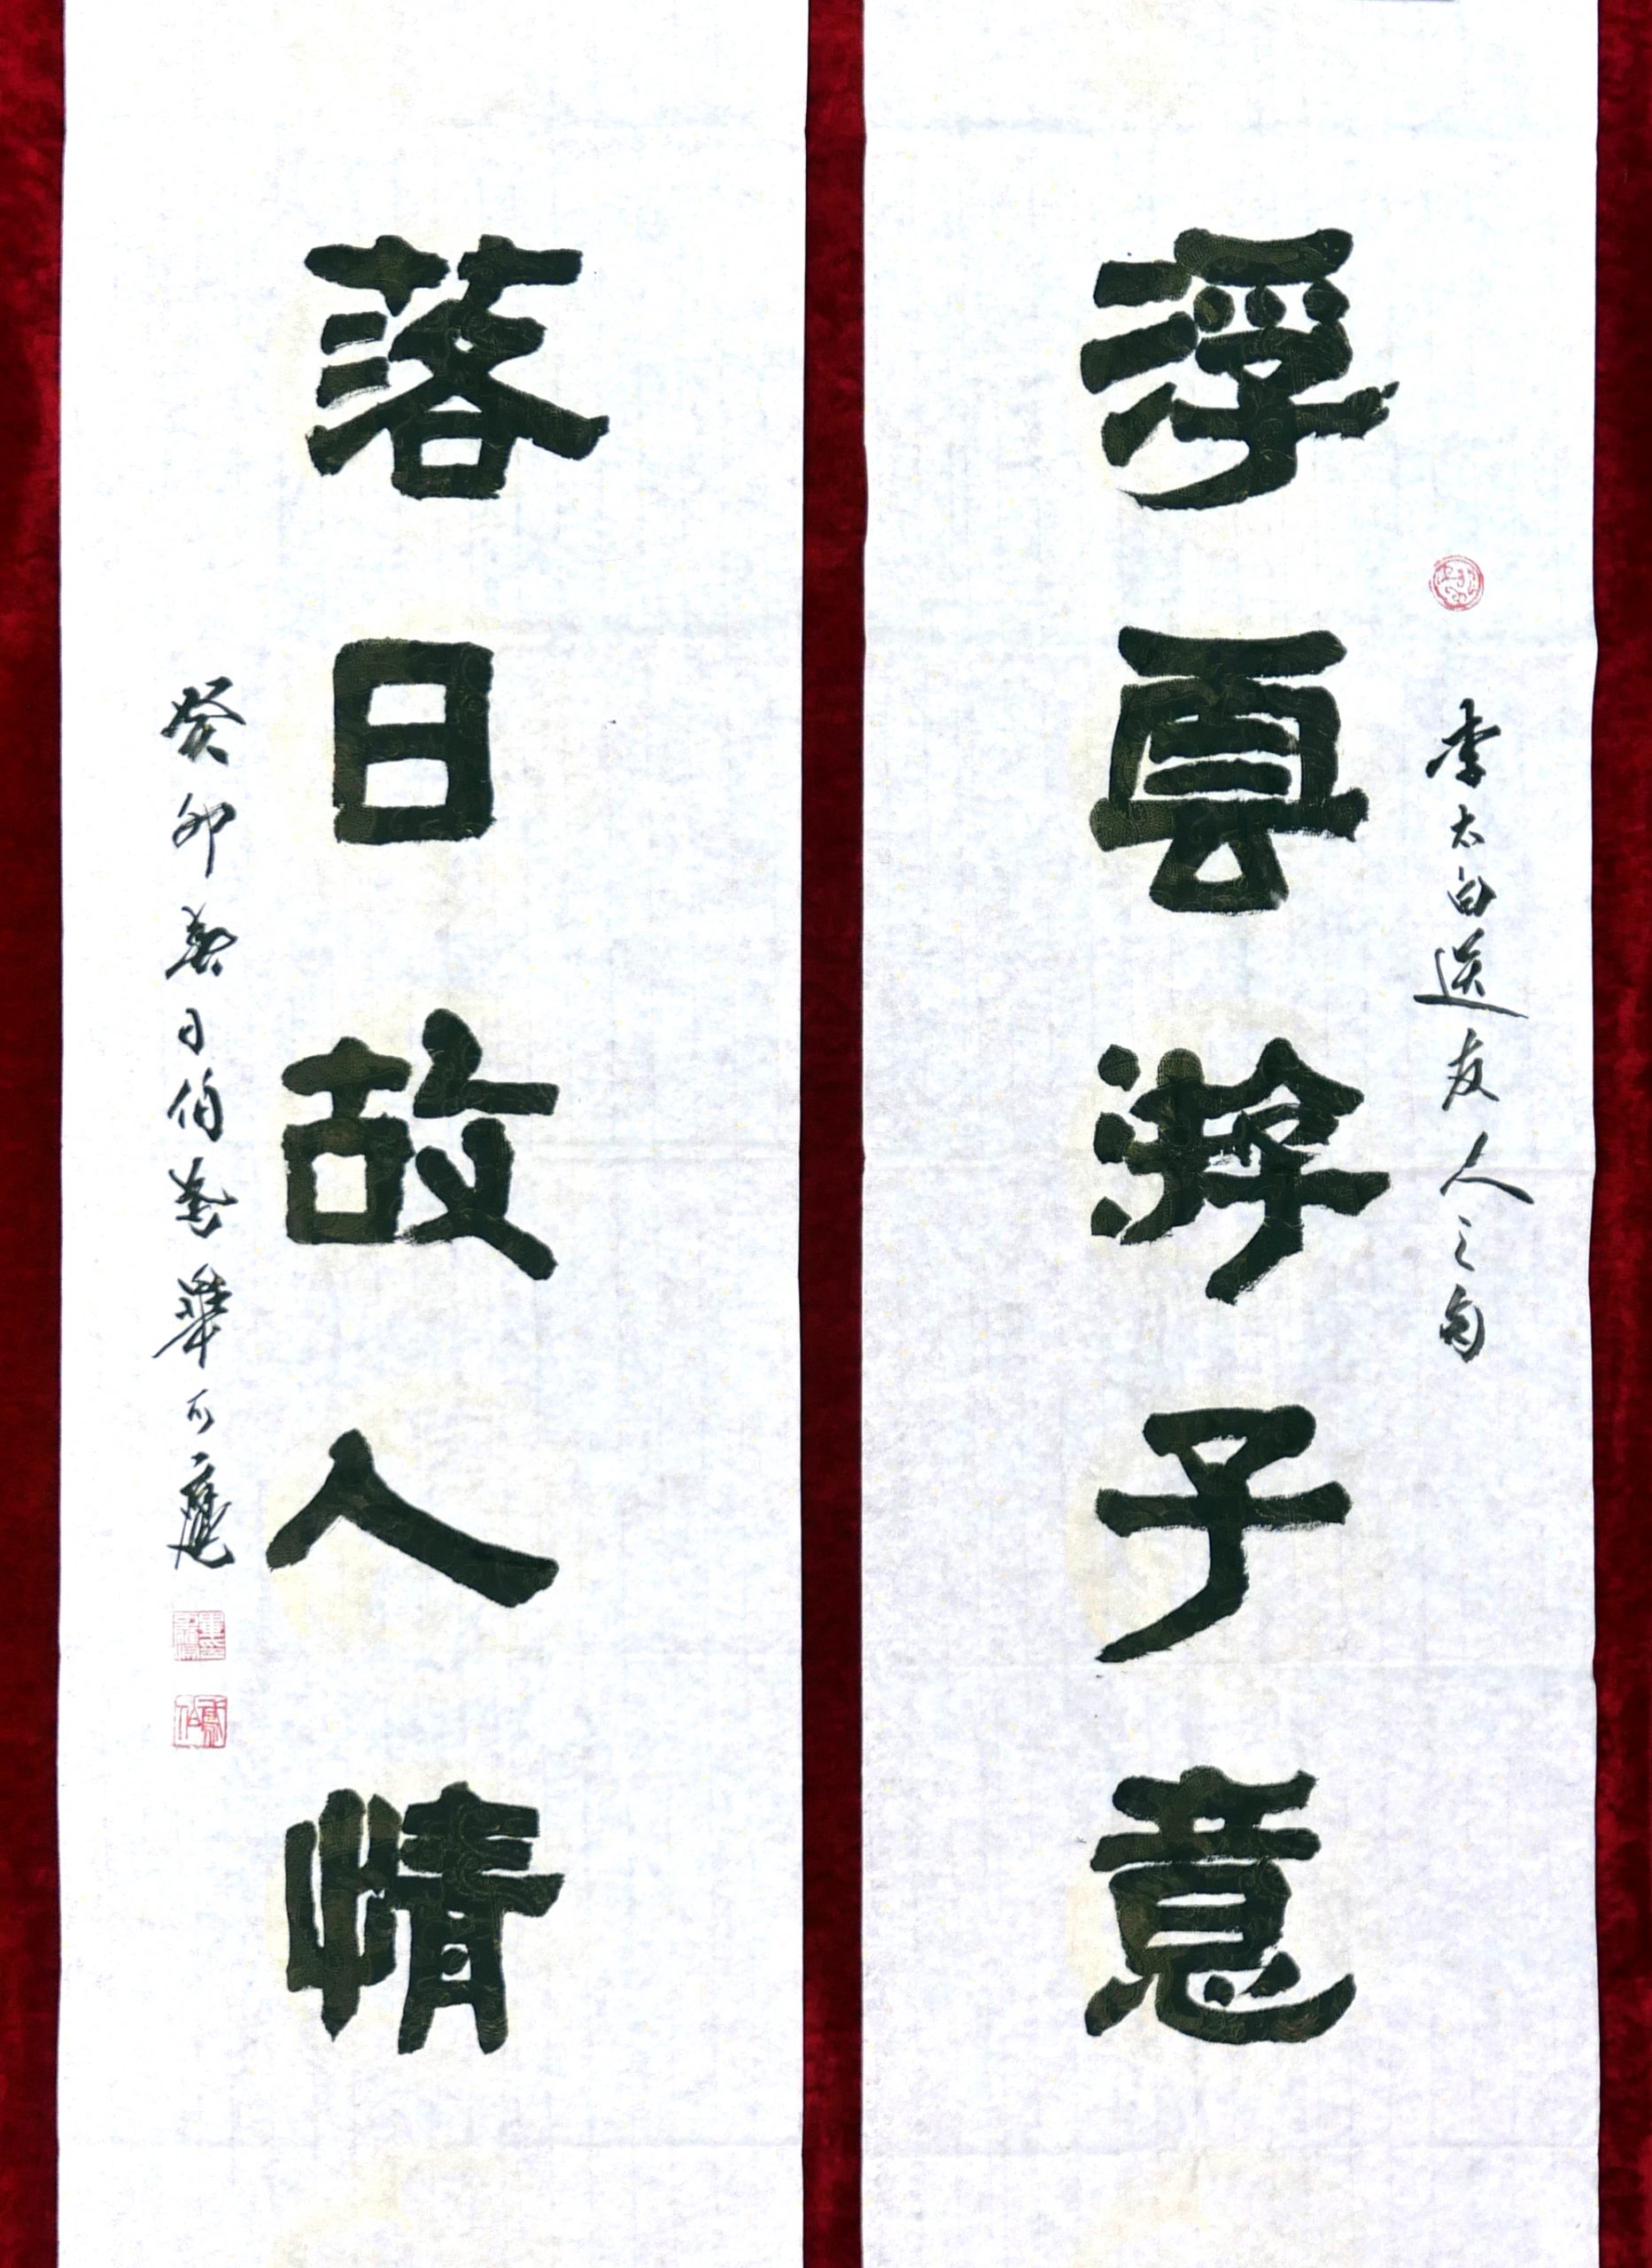 浮雲游子意
李太白送友人之句
落日故人情
癸卯春日伯